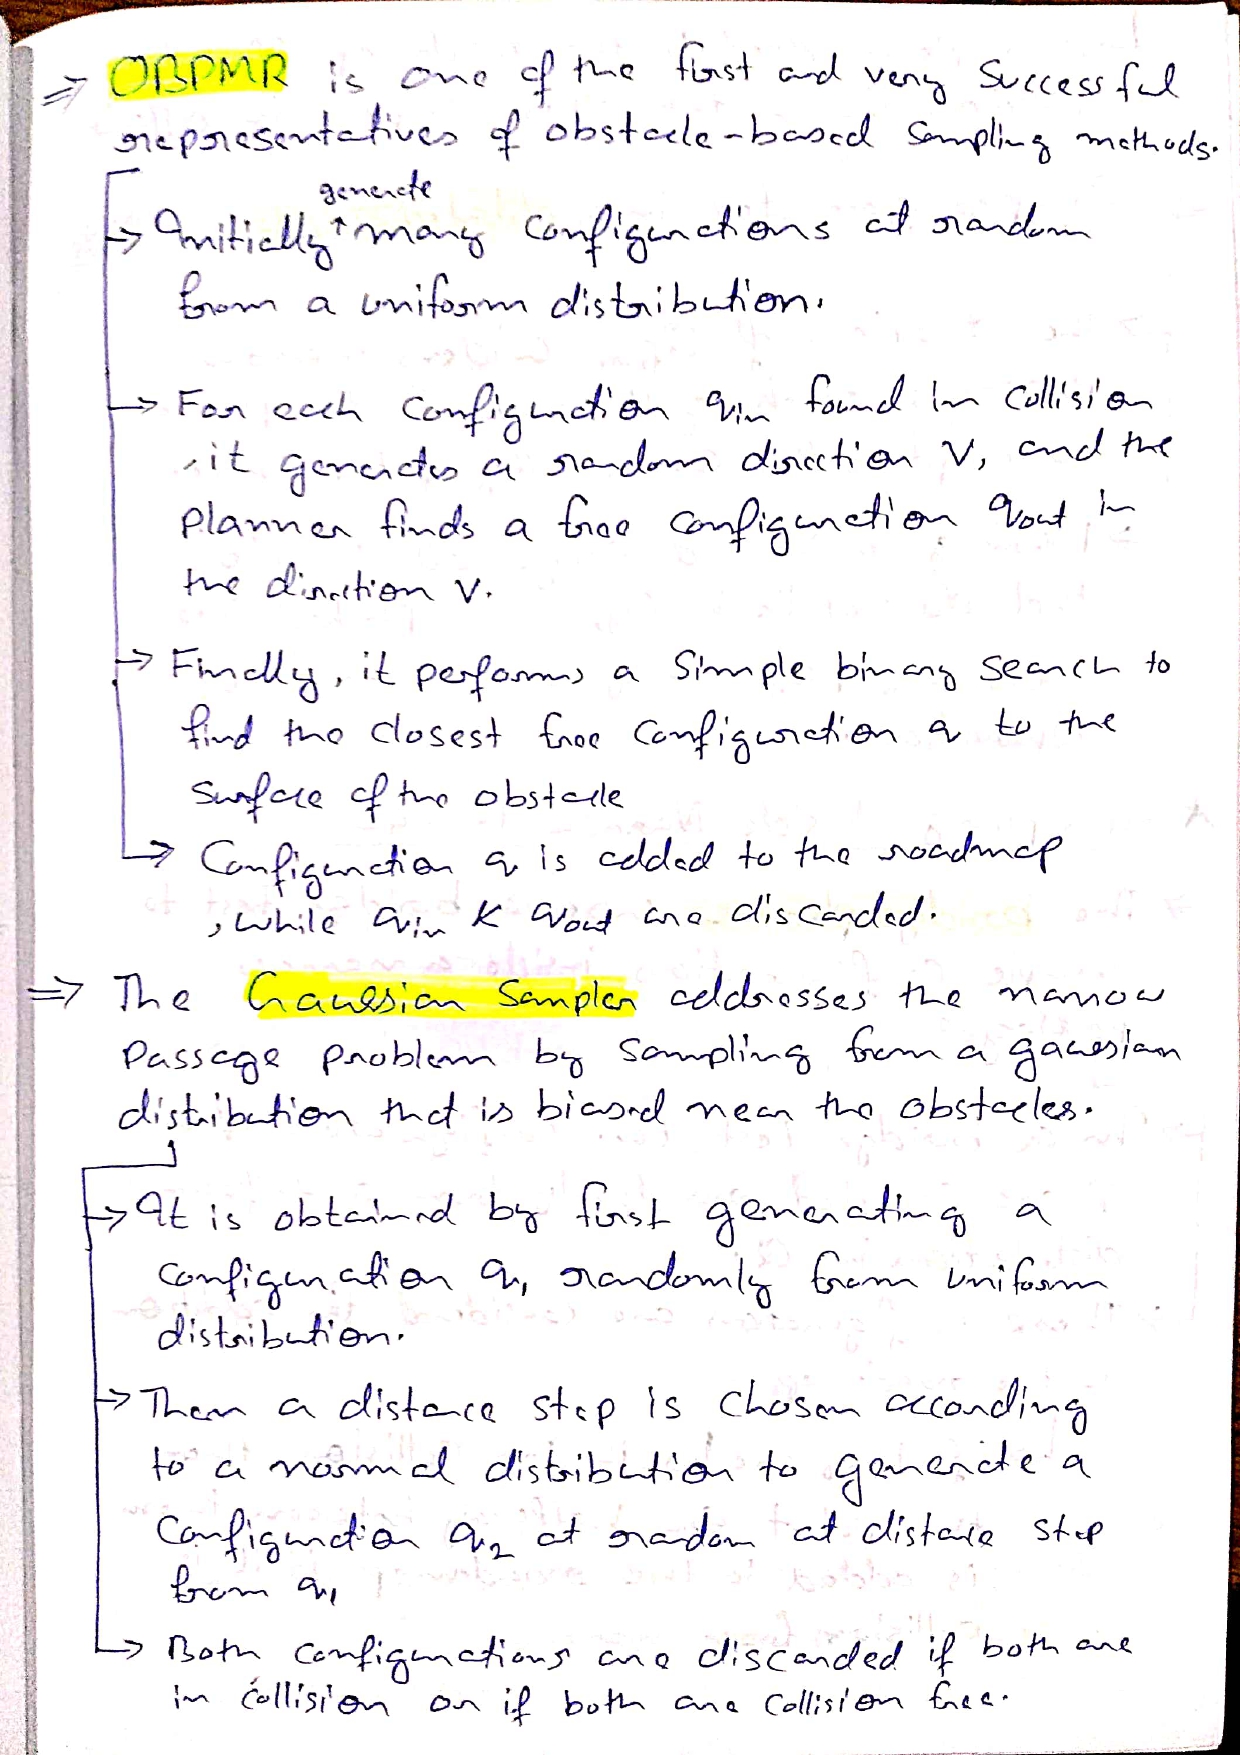 ⇒ OBPMR is one of the first and very successful
representatives of obstacle-based sampling methods.
generate
→ Initially ↑ many configurations at random
from a uniform distribution.
→ For each configuration qin found in collision
, it generates a random direction v, and the
planner finds a free configuration qout in
the direction v.
→ Finally, it performs a simple binary search to
find the closest free configuration q to the
surface of the obstacle
→ Configuration q is added to the roadmap
, while qin & qout are discarded.
⇒ The Gaussian Sampler addresses the narrow
passage problem by sampling from a gaussian
distribution that is biased near the obstacles.
→ It is obtained by first generating a
configuration q1 randomly from uniform
distribution.
→ Then a distance step is chosen according
to a normal distribution to generate a
configuration q2 at random at distance step
from q1
→ Both configurations are discarded if both are
in collision or if both are collision free.